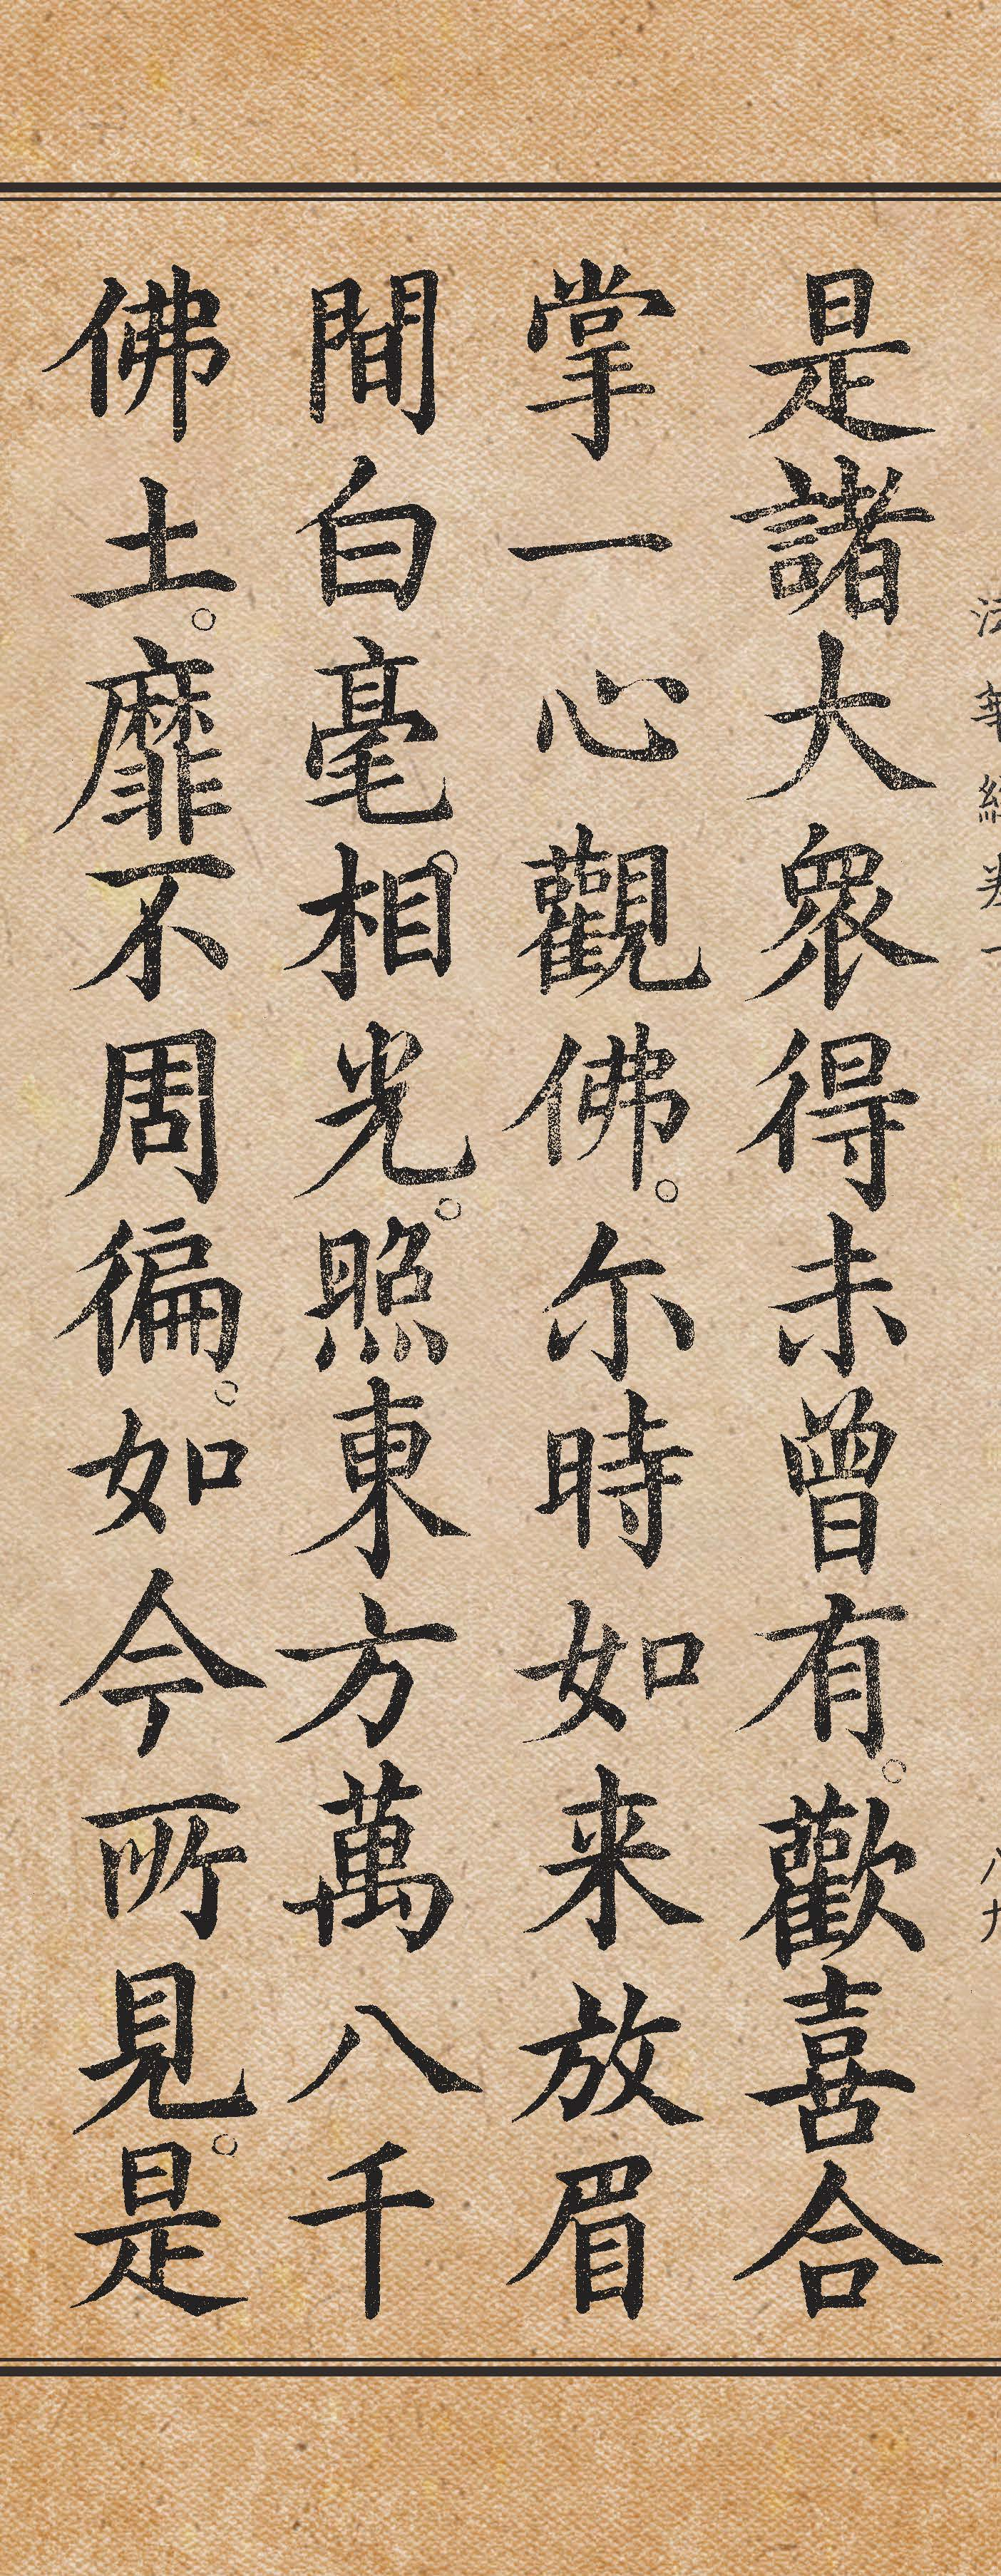 是諸大衆得未曾有。歡喜合
掌一心觀佛。尒時如来放眉
間白毫相。光。照東方萬八千
佛土。靡不周徧。如今所見。是